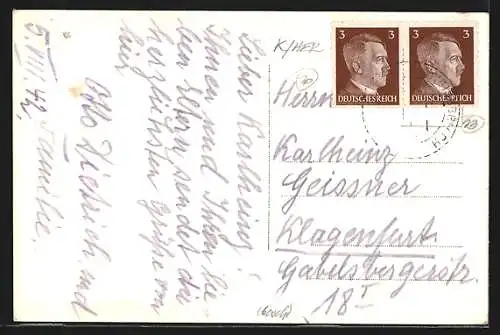 Lieber Karlheinz!
Ihnen und Ihren lie-
ben Eltern sendet die
herzlichsten Grüße von
hier,
Otto Dietrich und
Familie.
5. VIII. 42
K/HER
3 3
DEUTSCHES REICH DEUTSCHES REICH
Herrn
Karlheinz
Geissner
Klagenfurt.
Gabelsbergerstr.
18 I